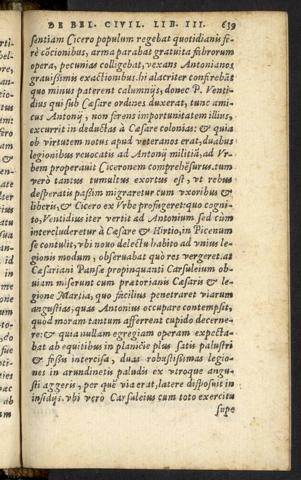 DE BEL. CIVIL. LIB. III. 639
sentiam Cicero populum regebat quotidianis fe-
rè cōcionibus, arma parabat gratuita fabrorum
opera, pecunias colligebat, vexans Antonianos
grauissimis exactionibus. hi alacriter conferebāt
quo minus paterent calumnijs, donec P. Venti-
dius qui sub Cæsare ordines duxerat, tunc ami-
cus Antonij, non ferens importunitatem illius,
excurrit in deductas à Cæsare colonias: & quia
ob virtutem notus apud veteranos erat, duabus
legionibus reuocatis ad Antonij militiā, ad Vr-
bem properauit Ciceronem comprehēsurus. tum
verò tantus tumultus exortus est, vt rebus
desperatis passim migraretur cum vxoribus &
liberis, & Cicero ex Vrbe profugeret: quo cogni-
to, Ventidius iter vertit ad Antonium sed cùm
intercluderetur à Cæsare & Hirtio, in Picenum
se contulit, vbi nouo delectu habito ad vnius le-
gionis modum, obseruabat quò res vergeret. at
Cæsariani Pansæ propinquanti Carsuleium ob-
uiam miserunt cum prætorianis Cæsaris & le-
gione Martia, quo facilius penetraret viarum
angustias, quas Antonius occupare contempsit,
quod moram tantum afferrent cupido decerne-
re: & quia nullam egregiam operam expecta-
bat ab equitibus in planicie plus satis palustri
& fossis intercisa, duas robustissimas legio-
nes in arundinetis paludis ex vtroque angu-
sti aggeris, per quē via erat, latere disposuit in
insidijs. vbi verò Carsuleius cum toto exercitu
supe